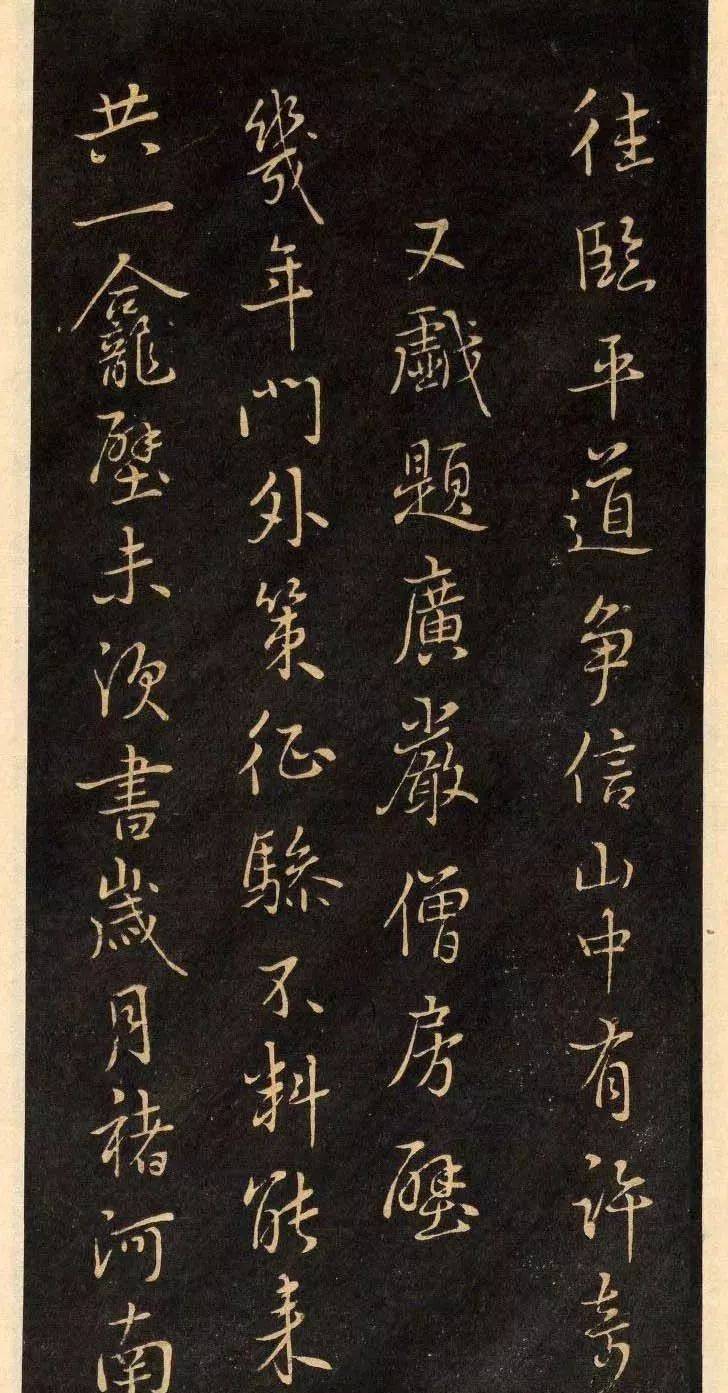 往臨平道爭信山中有許奇
又戲題廣嚴僧房壁
幾年門外策征驂不料能來
共一龕壁未須書歲月褚河南